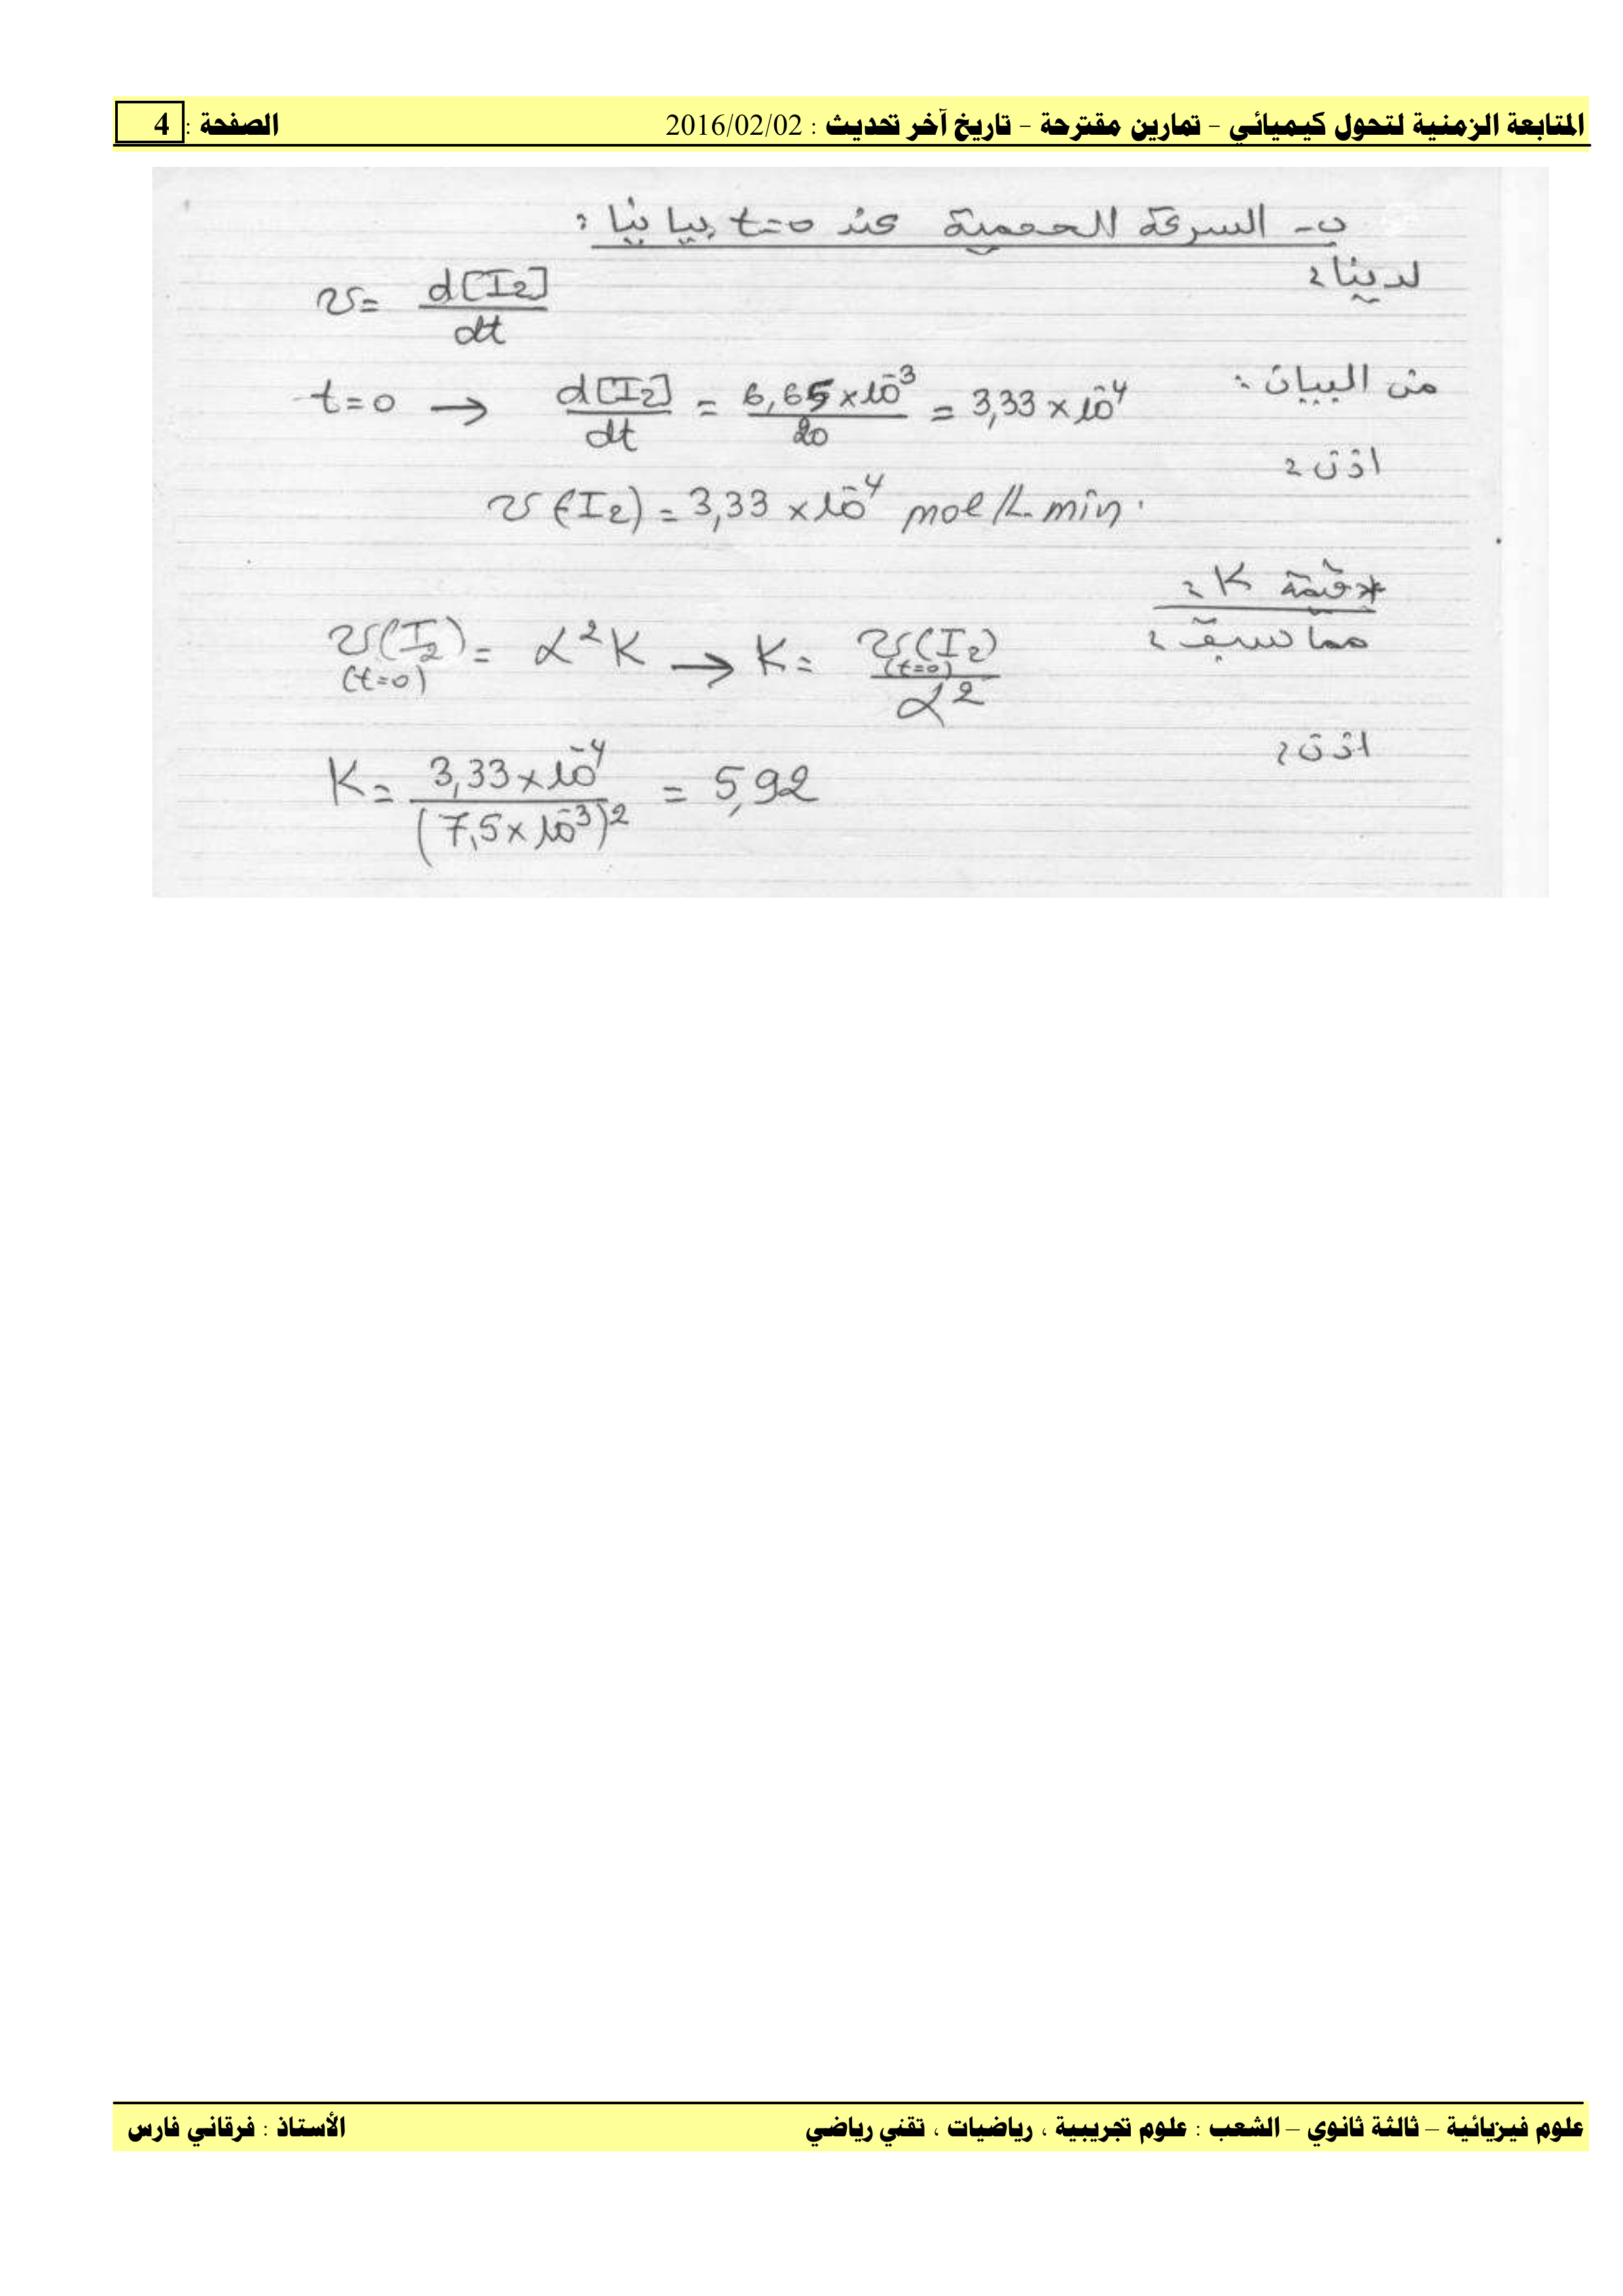 المتابعة الزمنية لتحول كيميائي – تمارين مقترحة – تاريخ آخر تحديث : 2016/02/02 الصفحة : 4
ب- السرعة الحجمية عند t=0 بيانيا :
لدينا :
v = d[I2]/dt
من البيان :
t=0 → d[I2]/dt = 6,65 × 10^-3 / 20 = 3,33 × 10^-4
اذن :
v(I2) = 3,33 × 10^-4 mol/L.min.
* قيمة K :
مما سبق :
v(I2)(t=0) = α²K → K = v(I2)(t=0) / α²
اذن :
K = 3,33 × 10^-4 / (7,5 × 10^-3)² = 5,92
علوم فيزيائية – ثالثة ثانوي – الشعب : علوم تجريبية ، رياضيات ، تقني رياضي الأستاذ : فرقاني فارس